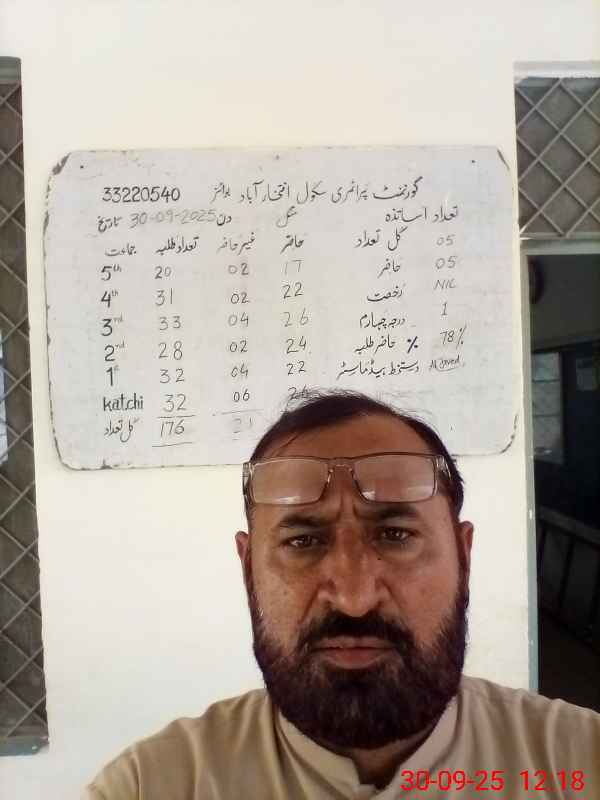 گورنمنٹ پرائمری سکول افتخار آباد بوائز 33220540
تعداد اساتذہ منگل دن 30-09-2025 تاریخ
جماعت تعداد طلبہ غیر حاضر حاضر
5th 20 02 17
4th 31 02 22
3rd 33 04 26
2nd 28 02 24
1st 32 04 22
katchi 32 06
کل تعداد 176 21
کل تعداد 05
حاضر 05
رخصت NIL
درجہ چہارم 1
% حاضر طلبہ 78%
دستخط ہیڈ ماسٹر
30-09-25 12:18